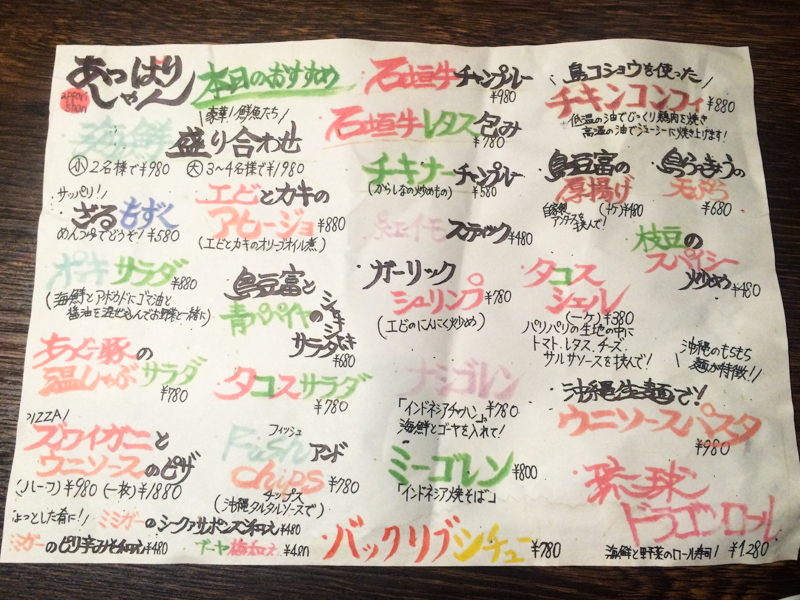 あっぱり
しゃん
appari
shan
本日のおすすめ
豪華!鮮魚たち
盛り合わせ
小 2名様で¥980 大 3〜4名様で¥1980
サッパリ!
ざるもずく
めんつゆでどうぞ! ¥580
ポキサラダ
¥880
(海鮮とアボカドにゴマ油と
醤油を混ぜ込んでお野菜と一緒に)
あぐー豚の
温しゃぶサラダ
¥780
PIZZA!
ズワイガニと
ウニソースのピザ
(ハーフ)¥980 (一枚)¥1880
ちょっとした肴に!!
ミミガーのシークァサーポン酢和え ¥480
ミミガーのピリ辛みそ和え ¥480
エビとカキの
アヒージョ ¥880
(エビとカキのオリーブオイル煮)
島豆富と
青パパイヤの
シャキシャキ
サラダ
¥680
タコスサラダ
¥780
フィッシュ
Fish アンド
chips ¥780
チップス
(沖縄タルタルソースで)
ゴーヤ梅和え ¥480
石垣牛チャンプルー
¥980
石垣牛レタス包み
¥780
チキナーチャンプルー
(からしなの炒めもの) ¥580
紅イモスティック ¥480
ガーリック
シュリンプ ¥780
(エビのにんにく炒め)
ナシゴレン
「インドネシアチャーハン」 ¥780
海鮮とゴーヤを入れて!
ミーゴレン ¥800
「インドネシア焼そば」
バックリブシチュー ¥780
島コショウを使った
チキンコンフィ ¥880
低温の油でじっくり鶏肉を焼き
高温の油でジューシーに焼き上げます!
島豆富の
厚揚げ
(一ヶ) ¥480
島らっきょうの
天ぷら
¥680
枝豆の
スパイシー
炒め ¥480
タコス
シェル
(一ヶ) ¥380
パリパリの生地の中に
トマト、レタス、チーズ、
サルサソースを挟んで!
沖縄のもちもち
麺が特徴!!
沖縄生麺で!
ウニソースパスタ
¥980
琉球
ドラゴンロール
海鮮と野菜のロール寿司! ¥1,280